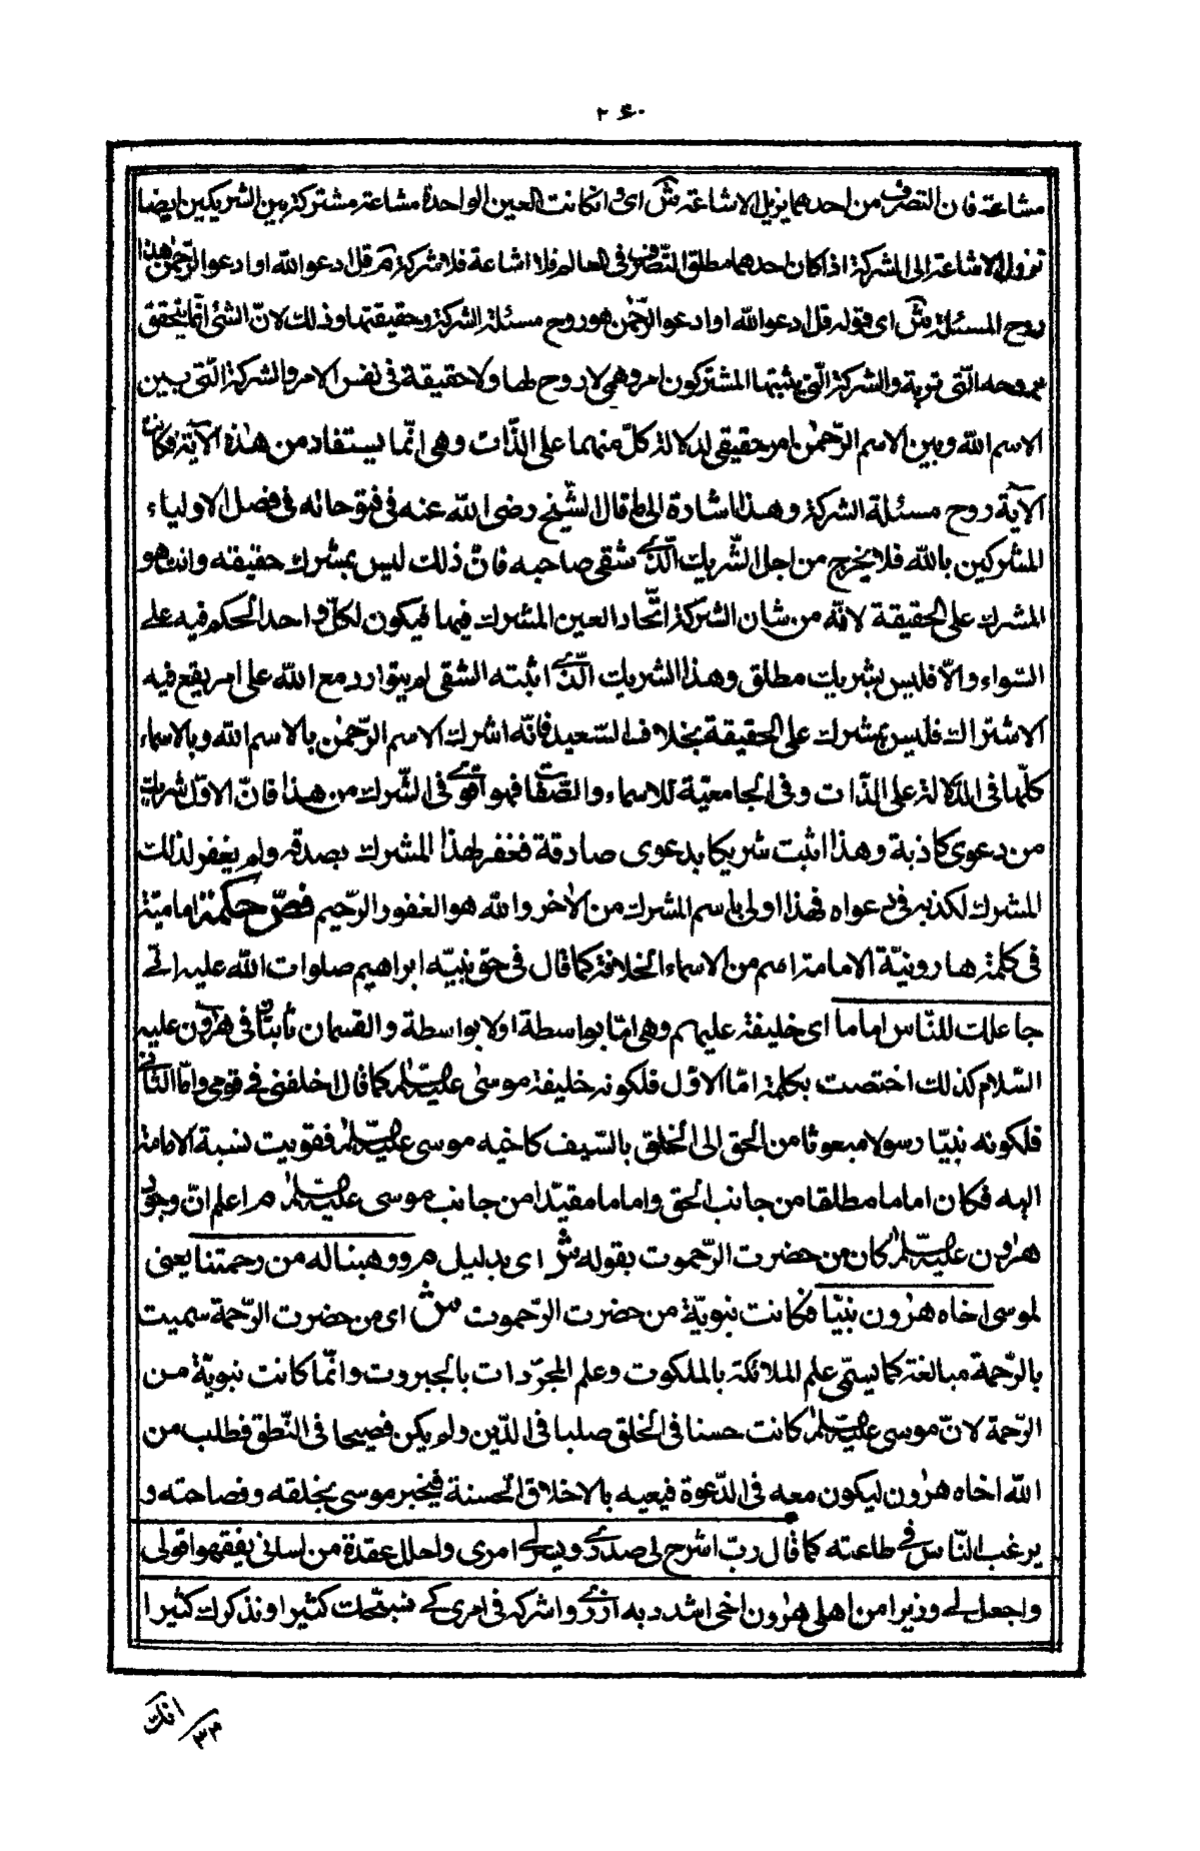 ٢٤٠
مشاعة فان التصرف من احدهما يزيل الاشاعة ش اى ان كانت العين الواحدة مشاعة مشتركة بين الشريكين ايضا
تزول الاشاعة الى الشركة اذا كان احدهما مطلق التصرف فى العالم فلا اشاعة فلا شركة م قل ادعوا الله او ادعوا الرحمن هذا
روح المسئلة ش اى قوله قل ادعوا الله او ادعوا الرحمٰن هو روح مسئلة الشركة وحقيقتها وذلك لانّ الشئ انّما يتحقق
بروحه الّتى تربه والشركة الّتى يثبتها المشركون امر وهمى لا روح لها ولا حقيقة فى نفس الامر والشركة الّتى بين
الاسم الله وبين الاسم الرّحمٰن امر حقيقى لدلالة كلّ منهما على الذّات وهى انّما يستفاد من هٰذه الآية فكانت
الآية روح مسئلة الشركة وهذا اشارة الى ما قال الشّيخ رضى الله عنه فى فتوحاته فى فصل الاولياء
المشركين بالله فلا يخرج من اجل الشّريك الّذى شقى صاحبه فانّ ذلك ليس بمشرك حقيقه وانت هو
المشرك على الحقيقة لانّه من شان الشركة اتّحاد العين المشرك فيها فيكون لكلّ واحد الحكم فيه على
السّواء والّا فليس بشريك مطلق وهذا الشريك الّذى اثبته الشقى لم يتوارد مع الله على امر يقع فيه
الاشتراك فليس بمشرك على الحقيقة بخلاف السّعيد فانّه اشرك الاسم الرّحمٰن بالاسم الله وبالاسماء
كلّها فى الدّلالة على الذّات وفى الجامعيّة للاسماء والصّفات فهو اقوى فى الشّرك من هذا فانّ الاوّل شريك
من دعوى كاذبة وهذا اثبت شريكا بدعوى صادقة فغفر لهذا المشرك بصدقه ولم يغفر لذلك
المشرك لكذبه فى دعواه فهذا اولى باسم المشرك من الآخر والله هو الغفور الرّحيم فصّ حكمة امامية
فى كلمة هارونيّة الامامة اسم من الاسماء الخلافة كما قال فى حق نبيّه ابراهيم صلوات الله عليه انى
جاعلك للنّاس اماما اى خليفة عليهم وهى امّا بواسطة او لا بواسطة والقسمان ثابتان فى هٰرون عليه
السّلام كذلك اختصت بكلمة امّا الاوّل فلكونه خليفة موسى عليه السلام كما قال اخلفنى فى قومى وامّا الثانى
فلكونه نبيّا رسولا مبعوثا من الحق الى الخلق بالسّيف كاخيه موسى عليه السلام فقويت نسبة الامامة
اليه فكان اماما مطلقا من جانب الحق واماما مقيّدا من جانب موسى عليه السلام م اعلم انّ وجود
هٰرون عليه السلام كان من حضرت الرّحموت بقوله ش اى بدليل م ووهبنا له من رحمتنا يعنى
لموسى اخاه هٰرون نبيّا فكانت نبويّة من حضرت الرّحموت ش اى من حضرت الرّحمة سميت
بالرّحمة مبالغة كما يسمّى علم الملائكة بالملكوت وعلم المجرّدات بالجبروت وانّما كانت نبويّة من
الرّحمة لانّ موسى عليه السلام كانت حسنا فى الخلق صلبا فى الدّين ولم يكن فصيحا فى النّطق فطلب من
الله اخاه هٰرون ليكون معه فى الدّعوة فيعيه بالاخلاق الحسنة فيخبر موسى بخلقه وفصاحته و
يرغب النّاس فى طاعته كما قال ربّ اشرح لى صدرى ويسر لى امرى واحلل عقدة من لسانى يفقهوا قولى
واجعل لى وزيرا من اهلى هٰرون اخى اشدد به ازرى واشركه فى امرى كى نسبّحك كثيرا ونذكرك كثيرا
انك
٣٣